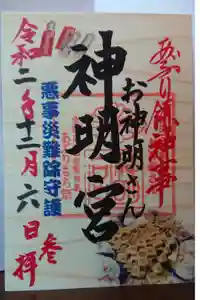 あぶり餅神事
お神明さん
神明宮
悪事災難除守護
令和二年十二月六日参拝